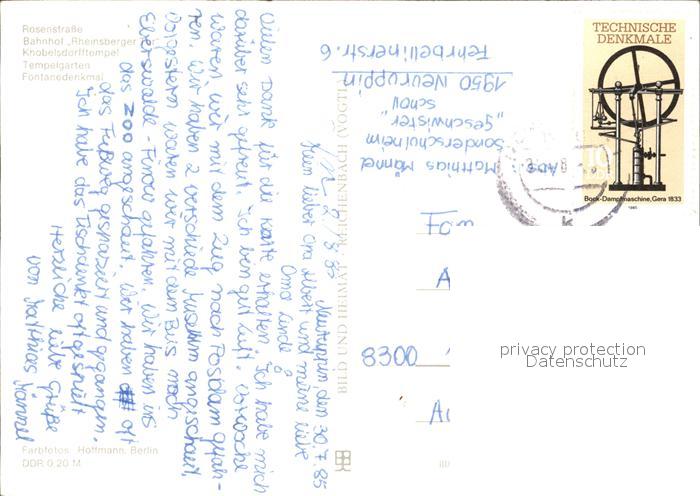 Rosenstraße
Bahnhof „Rheinsberger
Knobelsdorfftempel
Tempelgarten
Fontanedenkmal
Neuruppin, den 30.7.85
Mein lieber Opa Albert und meine liebe
Oma
Vielen Dank für die Karte erhalten. Ich habe mich
darüber sehr gefreut. Ich ben gut Luft. Vorwoche
waren wir mit dem Zug nach Posdam gefah-
ren. Wir haben 2 verschiede Museum angeschaut.
Vorgestern waren wir mit dem Bus nach
Eberswalde - Finow gefahren. Wir haben ins
das ZOO angeschaut. Wir haben oft
das Fußweg gespaziert und gegangen.
Ich habe das Tischdenkt oft gespielt
Herzliche liebe Grüße
von Matthias Männel
Farbfotos: Hoffmann, Berlin
DDR 0,20 M
BILD UND HEIMAT · REICHENBACH (VOGTL
Abs.
Matthias Männel
Sonderschulheim
„Geschwister
Scholl"
1950 Neuruppin
Fehrbellinerstr. 6
TECHNISCHE
DENKMALE
10
Bock-Dampfmaschine, Gera 1833
1985
Fam
8300
privacy protection
Datenschutz